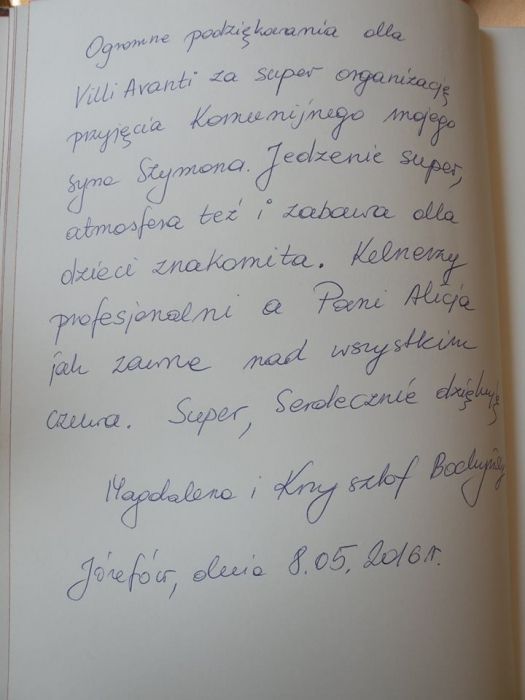 Ogromne podziękowania dla
Villi Avanti za super organizację
przyjęcia Komunijnego mojego
syna Szymona. Jedzenie super,
atmosfera też i zabawa dla
dzieci znakomita. Kelnerzy
profesjonalni a Pani Alicja
jak zawsze nad wszystkim
czuwa. Super, Serdecznie dziękuję
Magdalena i Krzysztof
Józefów, dnia 8.05.2016r.